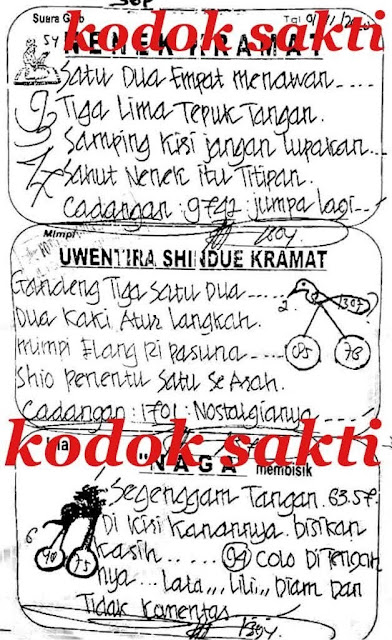 Suara Gaib
Tgl 9/11/20
kodok sakti
NENEK KRAMAT
Satu Dua Empat menawan.....
Tiga Lima Tepuk Tangan.
Samping Kisi jangan lupakan...
Sahut Nenek itu Titipan.
Cadangan : 9742 : jumpa lagi...
1304
Mimpi
UWENTIRA SHINDUE KRAMAT
Gandeng Tiga Satu Dua.....
Dua Kaki Atur Langkah.
mimpi Elang Ri pasuna...
Shio penentu Satu Se Arah.
Cadangan : 1701 : Nostalgianya.....
2.
1307
85
78
kodok sakti
"NAGA" membisik
Segenggam Tangan. 63.57.
Di Kisi Kanannya. bisikan
Kasih..... 94 Colo Di Tengah
nya... Lala,,, Lili,, Diam Dan
Tidak Komentas
6
90
75
1304